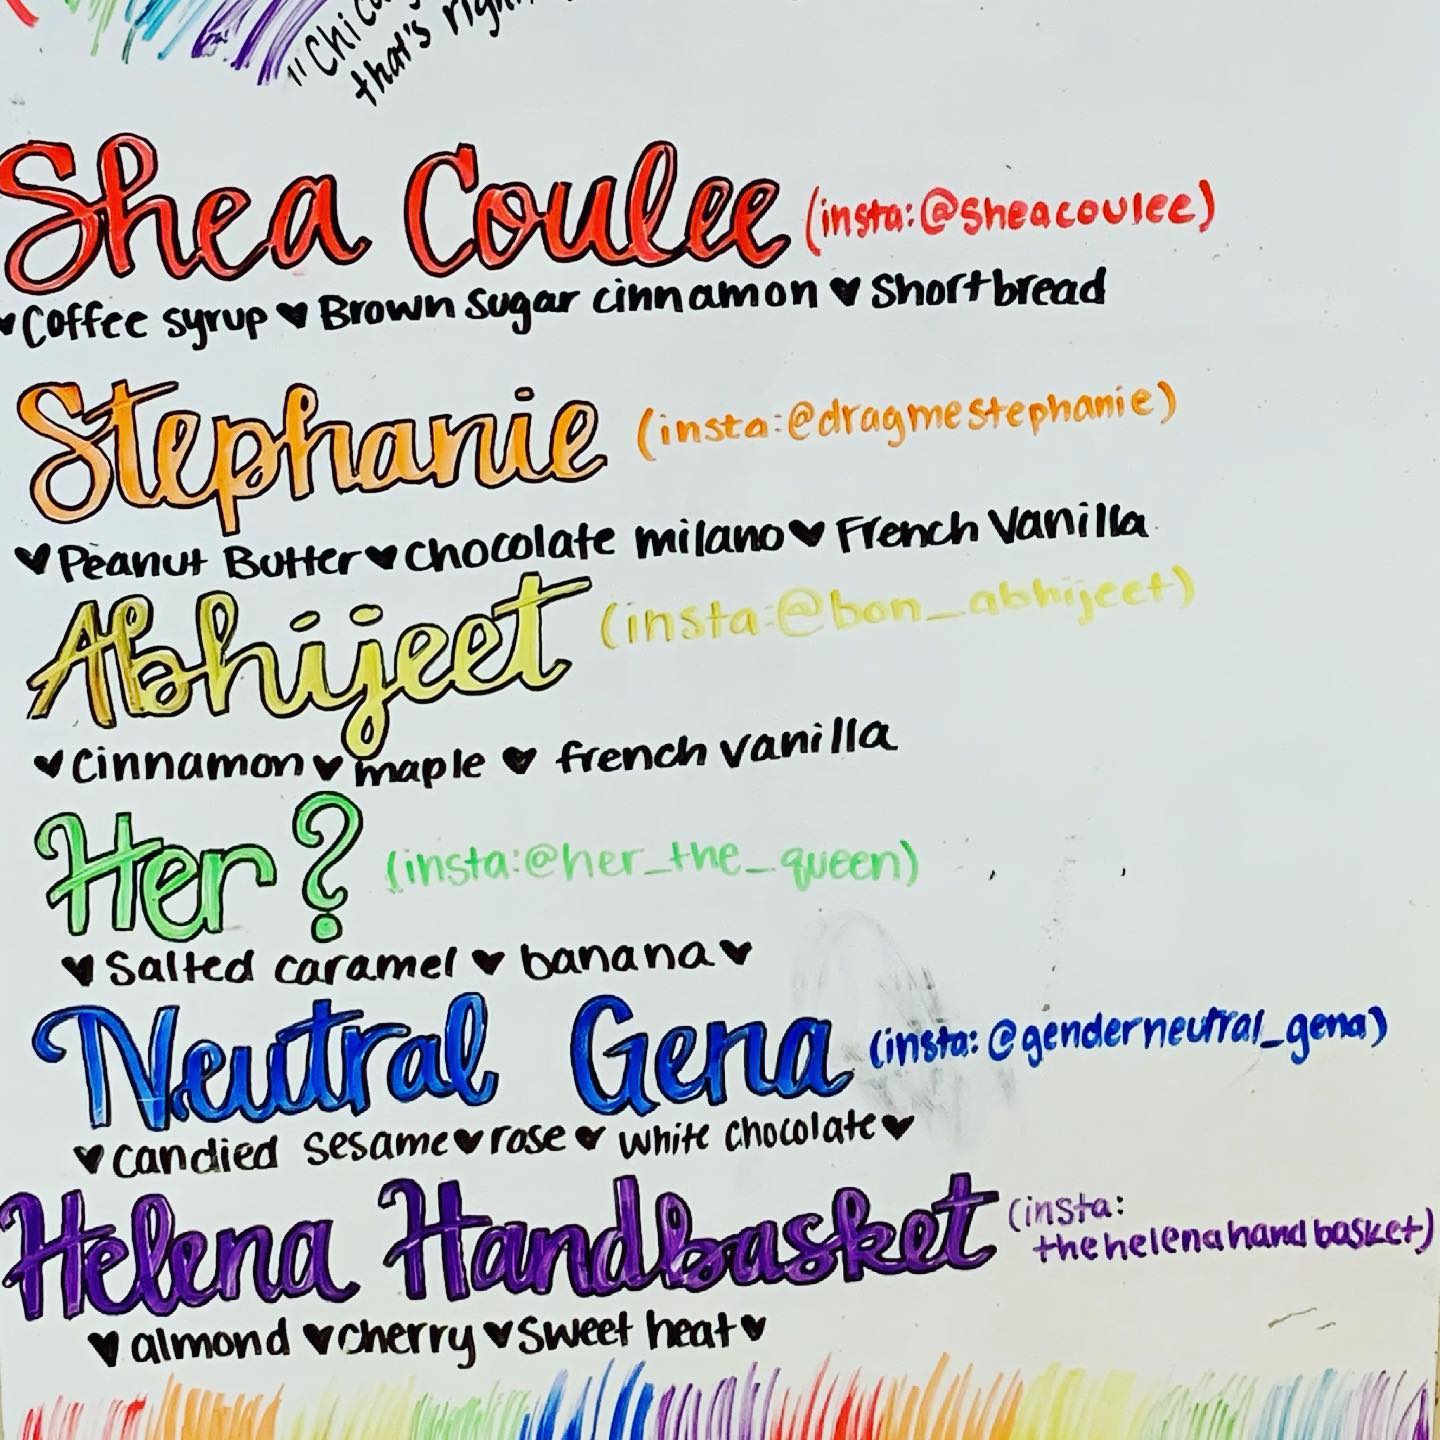 "Chica
that's righ
Shea Coulee (insta:@sheacoulee)
♥Coffee syrup ♥ Brown sugar cinnamon ♥ Shortbread
Stephanie (insta:@dragmestephanie)
♥Peanut Butter♥Chocolate milano♥ French Vanilla
Abhijeet (insta:@bon_abhijeet)
♥Cinnamon♥ maple ♥ french vanilla
Her? (insta:@her_the_queen)
♥ Salted caramel ♥ banana♥
Neutral Gena (insta: @genderneutral_gena)
♥candied sesame♥rose♥ white chocolate♥
Helena Handbasket (insta:
thehelenahandbasket)
♥almond ♥cherry♥Sweet heat♥